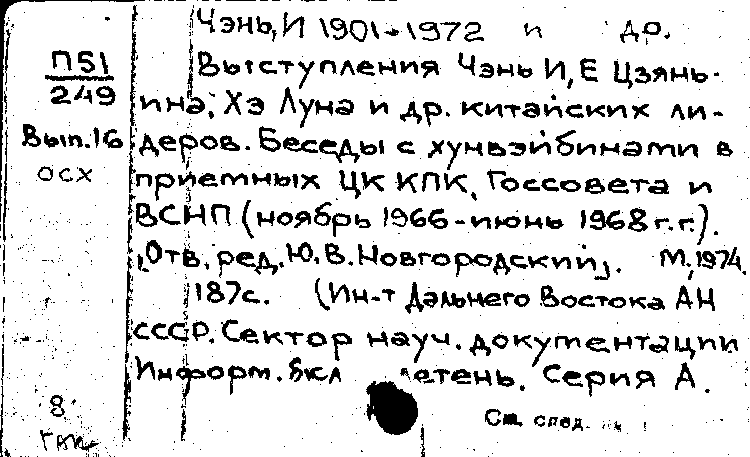 Чэнь, И 1901-1972 и др.
П51
249
Вып.16
осх
Выступления Чэнь И, Е Цзянь-
ина, Хэ Луна и др. китайских ли-
деров. Беседы с хунвэйбинами в
приемных ЦК КПК, Госсовета и
ВСНП (ноябрь 1966-июнь 1968 г.г.).
[Отв. ред. Ю.В. Новгородский]. М., 1974.
187с. (Ин-т Дальнего Востока АН
СССР. Сектор науч. документации
Информ. бюллетень. Серия А.
8
См. след.